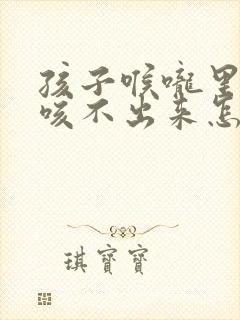 孩子喉咙里
咳不出来怎
琪寶寶